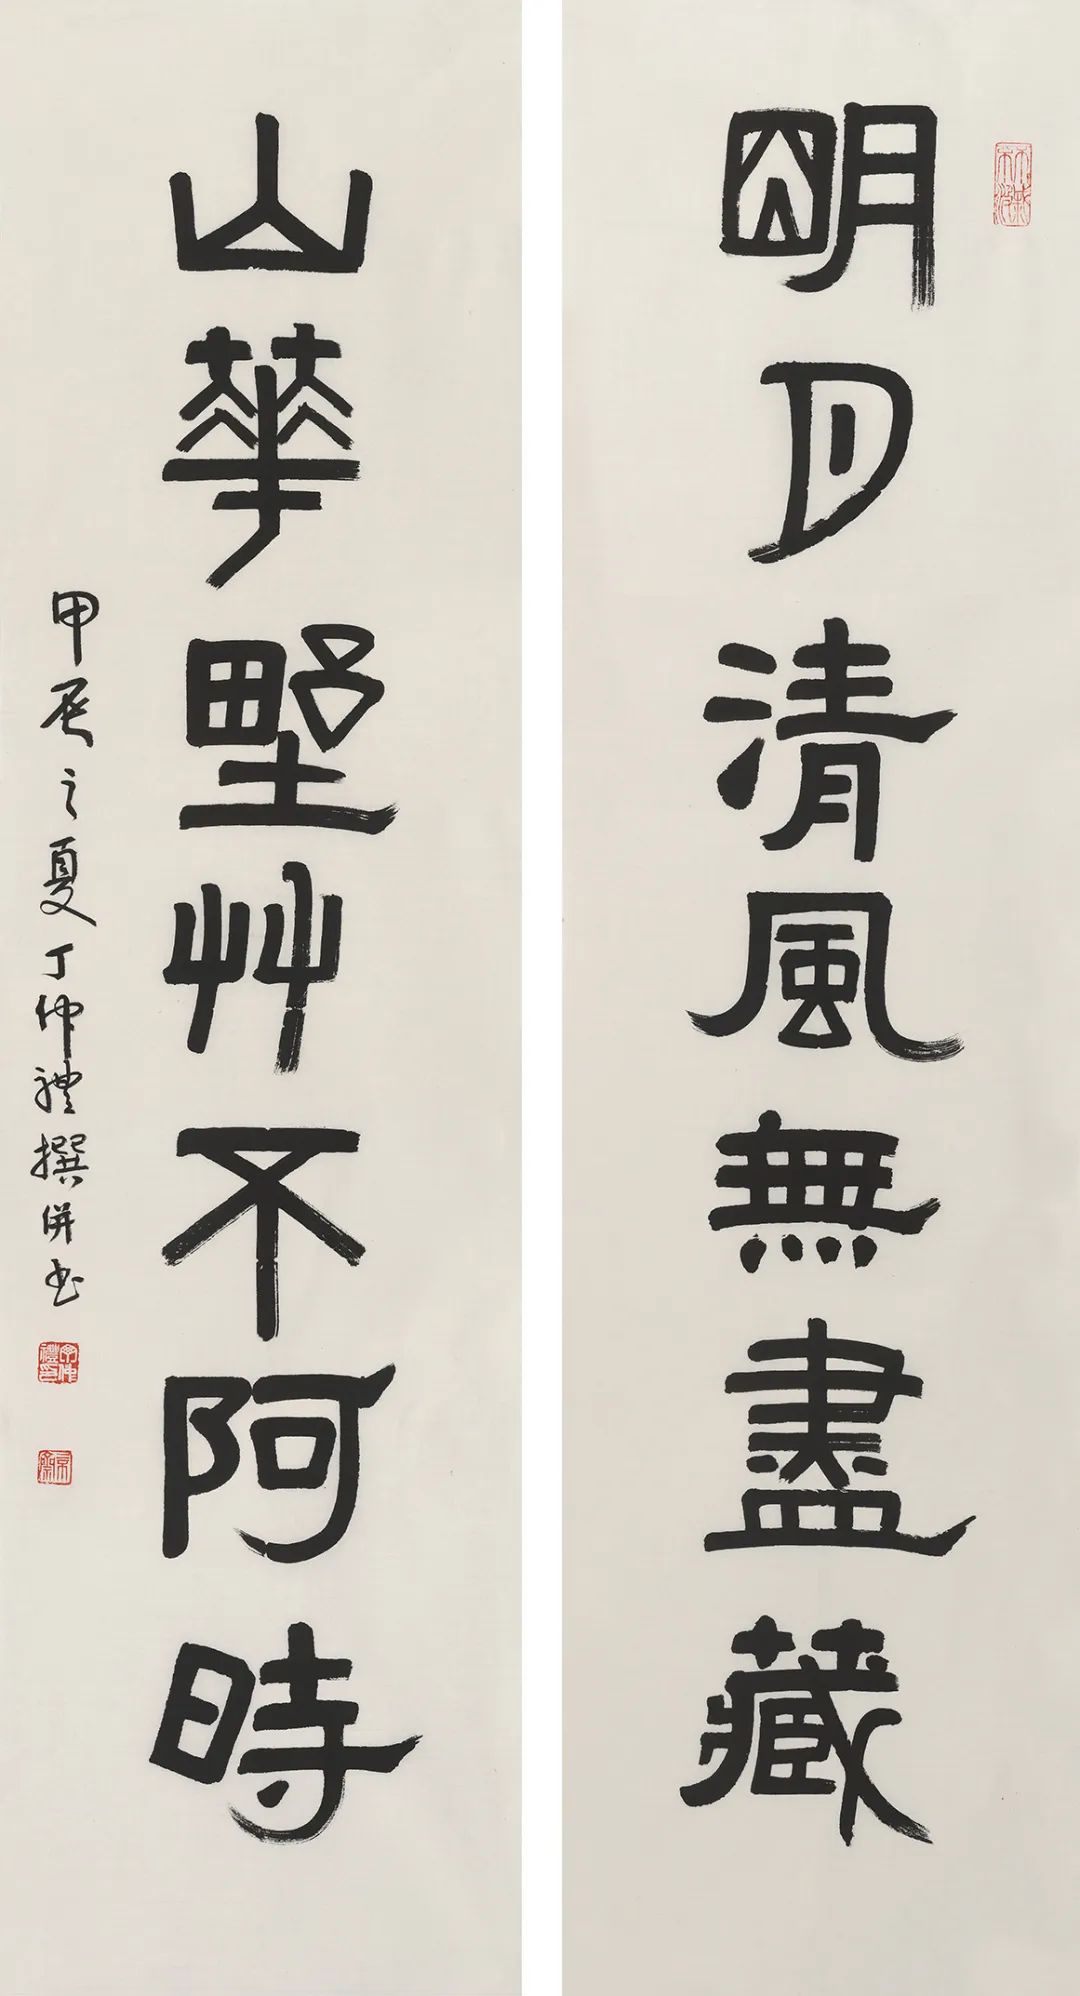 明月清風無盡藏
山華野艸不阿時
甲辰之夏丁仲禮撰併书